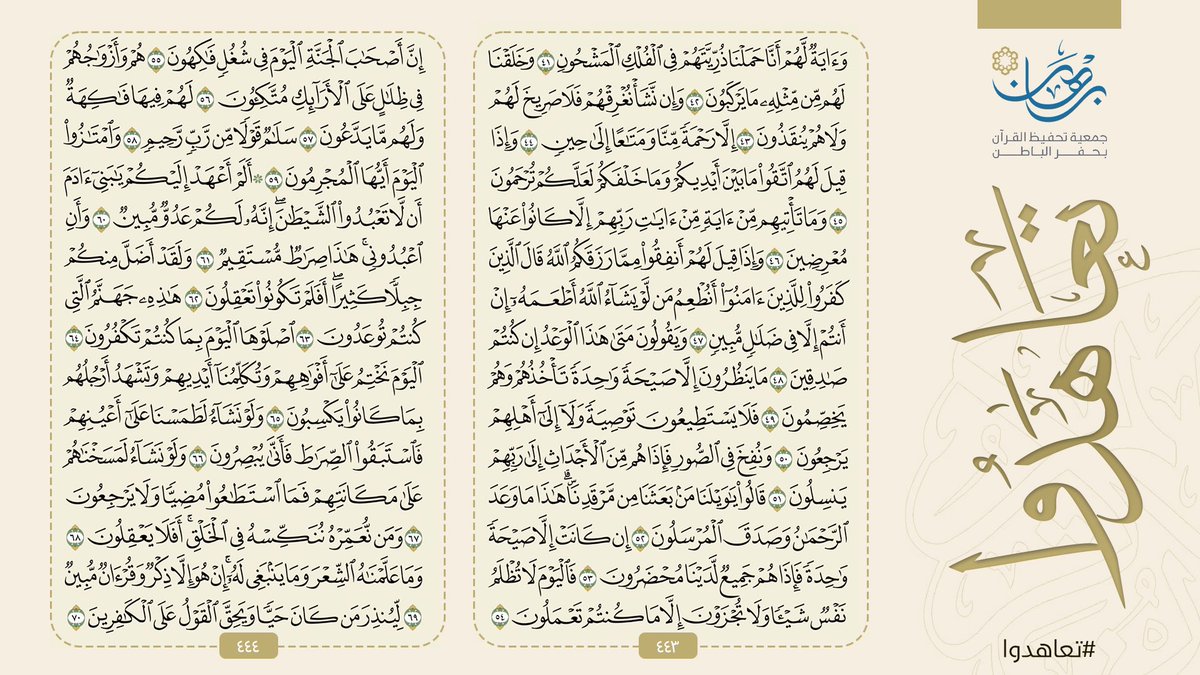 برهان
جمعية تحفيظ القرآن
بحفر الباطن
تعاهدوا
#تعاهدوا
وَءَايَةٌ لَّهُمْ أَنَّا حَمَلْنَا ذُرِّيَّتَهُمْ فِي الْفُلْكِ الْمَشْحُونِ ٤١ وَخَلَقْنَا
لَهُم مِّن مِّثْلِهِ مَا يَرْكَبُونَ ٤٢ وَإِن نَّشَأْ نُغْرِقْهُمْ فَلَا صَرِيخَ لَهُمْ
وَلَا هُمْ يُنقَذُونَ ٤٣ إِلَّا رَحْمَةً مِّنَّا وَمَتَٰعًا إِلَىٰ حِينٍ ٤٤ وَإِذَا
قِيلَ لَهُمُ اتَّقُوا۟ مَا بَيْنَ أَيْدِيكُمْ وَمَا خَلْفَكُمْ لَعَلَّكُمْ تُرْحَمُونَ
٤٥ وَمَا تَأْتِيهِم مِّنْ ءَايَةٍ مِّنْ ءَايَٰتِ رَبِّهِمْ إِلَّا كَانُوا۟ عَنْهَا
مُعْرِضِينَ ٤٦ وَإِذَا قِيلَ لَهُمْ أَنفِقُوا۟ مِمَّا رَزَقَكُمُ اللَّهُ قَالَ الَّذِينَ
كَفَرُوا۟ لِلَّذِينَ ءَامَنُوٓا۟ أَنُطْعِمُ مَن لَّوْ يَشَآءُ اللَّهُ أَطْعَمَهُۥٓ إِنْ
أَنتُمْ إِلَّا فِي ضَلَٰلٍ مُّبِينٍ ٤٧ وَيَقُولُونَ مَتَىٰ هَٰذَا الْوَعْدُ إِن كُنتُمْ
صَٰدِقِينَ ٤٨ مَا يَنظُرُونَ إِلَّا صَيْحَةً وَٰحِدَةً تَأْخُذُهُمْ وَهُمْ
يَخِصِّمُونَ ٤٩ فَلَا يَسْتَطِيعُونَ تَوْصِيَةً وَلَآ إِلَىٰٓ أَهْلِهِمْ
يَرْجِعُونَ ٥٠ وَنُفِخَ فِي الصُّورِ فَإِذَا هُم مِّنَ الْأَجْدَاثِ إِلَىٰ رَبِّهِمْ
يَنسِلُونَ ٥١ قَالُوا۟ يَٰوَيْلَنَا مَنۢ بَعَثَنَا مِن مَّرْقَدِنَا ۜ هَٰذَا مَا وَعَدَ
الرَّحْمَٰنُ وَصَدَقَ الْمُرْسَلُونَ ٥٢ إِن كَانَتْ إِلَّا صَيْحَةً
وَٰحِدَةً فَإِذَا هُمْ جَمِيعٌ لَّدَيْنَا مُحْضَرُونَ ٥٣ فَالْيَوْمَ لَا تُظْلَمُ
نَفْسٌ شَيْـًٔا وَلَا تُجْزَوْنَ إِلَّا مَا كُنتُمْ تَعْمَلُونَ ٥٤
٤٤٣
إِنَّ أَصْحَٰبَ الْجَنَّةِ الْيَوْمَ فِي شُغُلٍ فَٰكِهُونَ ٥٥ هُمْ وَأَزْوَٰجُهُمْ
فِي ظِلَٰلٍ عَلَى الْأَرَآئِكِ مُتَّكِـُٔونَ ٥٦ لَهُمْ فِيهَا فَٰكِهَةٌ
وَلَهُم مَّا يَدَّعُونَ ٥٧ سَلَٰمٌ قَوْلًا مِّن رَّبٍّ رَّحِيمٍ ٥٨ وَامْتَٰزُوا۟
الْيَوْمَ أَيُّهَا الْمُجْرِمُونَ ٥٩ ۞ أَلَمْ أَعْهَدْ إِلَيْكُمْ يَٰبَنِيٓ ءَادَمَ
أَن لَّا تَعْبُدُوا۟ الشَّيْطَٰنَ ۖ إِنَّهُۥ لَكُمْ عَدُوٌّ مُّبِينٌ ٦٠ وَأَنِ
اعْبُدُونِي ۚ هَٰذَا صِرَٰطٌ مُّسْتَقِيمٌ ٦١ وَلَقَدْ أَضَلَّ مِنكُمْ
جِبِلًّا كَثِيرًا ۖ أَفَلَمْ تَكُونُوا۟ تَعْقِلُونَ ٦٢ هَٰذِهِۦ جَهَنَّمُ الَّتِي
كُنتُمْ تُوعَدُونَ ٦٣ اصْلَوْهَا الْيَوْمَ بِمَا كُنتُمْ تَكْفُرُونَ ٦٤
الْيَوْمَ نَخْتِمُ عَلَىٰٓ أَفْوَٰهِهِمْ وَتُكَلِّمُنَآ أَيْدِيهِمْ وَتَشْهَدُ أَرْجُلُهُم
بِمَا كَانُوا۟ يَكْسِبُونَ ٦٥ وَلَوْ نَشَآءُ لَطَمَسْنَا عَلَىٰٓ أَعْيُنِهِمْ
فَاسْتَبَقُوا۟ الصِّرَٰطَ فَأَنَّىٰ يُبْصِرُونَ ٦٦ وَلَوْ نَشَآءُ لَمَسَخْنَٰهُمْ
عَلَىٰ مَكَانَتِهِمْ فَمَا اسْتَطَٰعُوا۟ مُضِيًّا وَلَا يَرْجِعُونَ
٦٧ وَمَن نُّعَمِّرْهُ نُنَكِّسْهُ فِي الْخَلْقِ ۖ أَفَلَا يَعْقِلُونَ ٦٨
وَمَا عَلَّمْنَٰهُ الشِّعْرَ وَمَا يَنۢبَغِي لَهُۥٓ ۚ إِنْ هُوَ إِلَّا ذِكْرٌ وَقُرْءَانٌ مُّبِينٌ
٦٩ لِّيُنذِرَ مَن كَانَ حَيًّا وَيَحِقَّ الْقَوْلُ عَلَى الْكَٰفِرِينَ ٧٠
٤٤٤